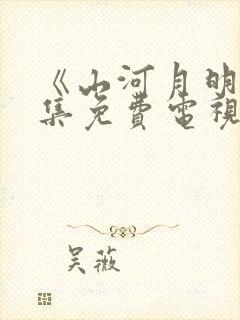 《山河月明
集免費電視
吴薇